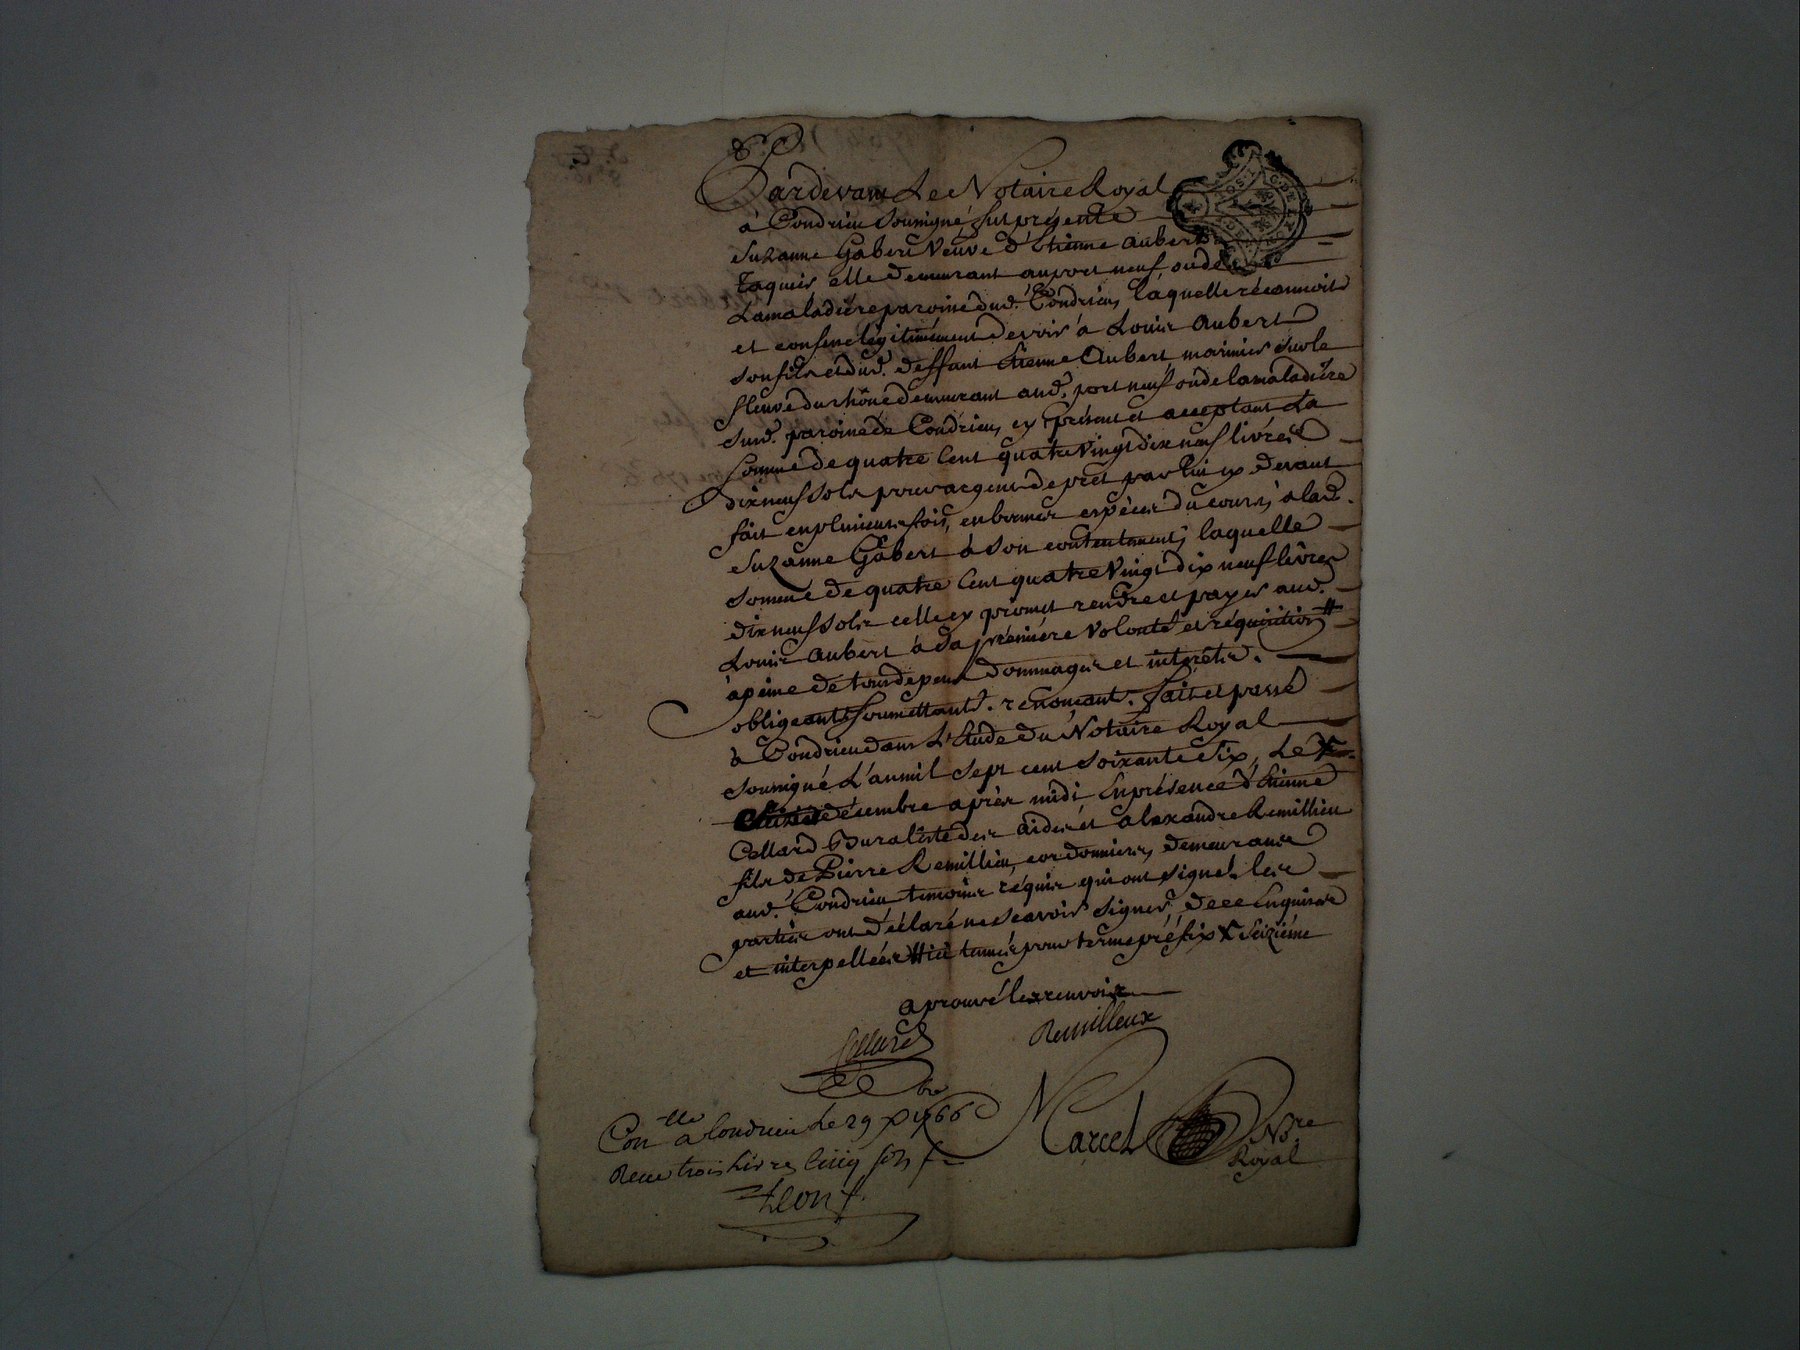 Pardevant Le Notaire Royal
à Condrieu soussigné, fut présente
Suzanne Gabert Veuve d'Etienne Aubert
elle demeurant au port neuf, ou de
Lamaladiere paroisse dud. Condrieu, laquelle réconnoit
et confesse légitimement devoir à Louis Aubert
son fils et dud. deffunt Etienne Aubert, marinier sur le
fleuve du rhône demeurant aud. port neuf ou de la maladière
sud. paroisse de Condrieu, cy présent et acceptant La
somme de quatre Cent quatre Vingt dix neuf livres
dix neuf sols pour argent de pret par lui cy devant
fait en plusieurs fois, en bonnes espèces du cours, a lad.
Suzanne Gabert à son contentement; laquelle
somme de quatre Cent quatre Vingt dix neuf livres
dix neuf sols celle cy promet rendre et payer aud.
Louis Aubert à sa prémière Volonté et réquisition #
à peine de tous depens dommages et interêts.
obligeant. soumettant. renonçant. fait et passé
à Condrieu dans L'Etude du Notaire Royal
soussigné L'an mil sept cent soixante Six, Le X
décembre après midi En présence d'Etienne
Cellard Buraliste des aides et alexandre Remillieu
fils de Pierre Remillieu, cordonnier, demeurants
aud. Condrieu temoins réquis qui ont signé. les
parties ont déclaré ne scavoir signer, de ce Enquises
et interpellées # ici tenues pour terme préfix X seizième
aprouvé les renvois
Cellard Remilleux
Con lle a Condrieu Le 29 Xbre 1766
Marcel Nre
Royal
Recu trois Livres Cinq sols